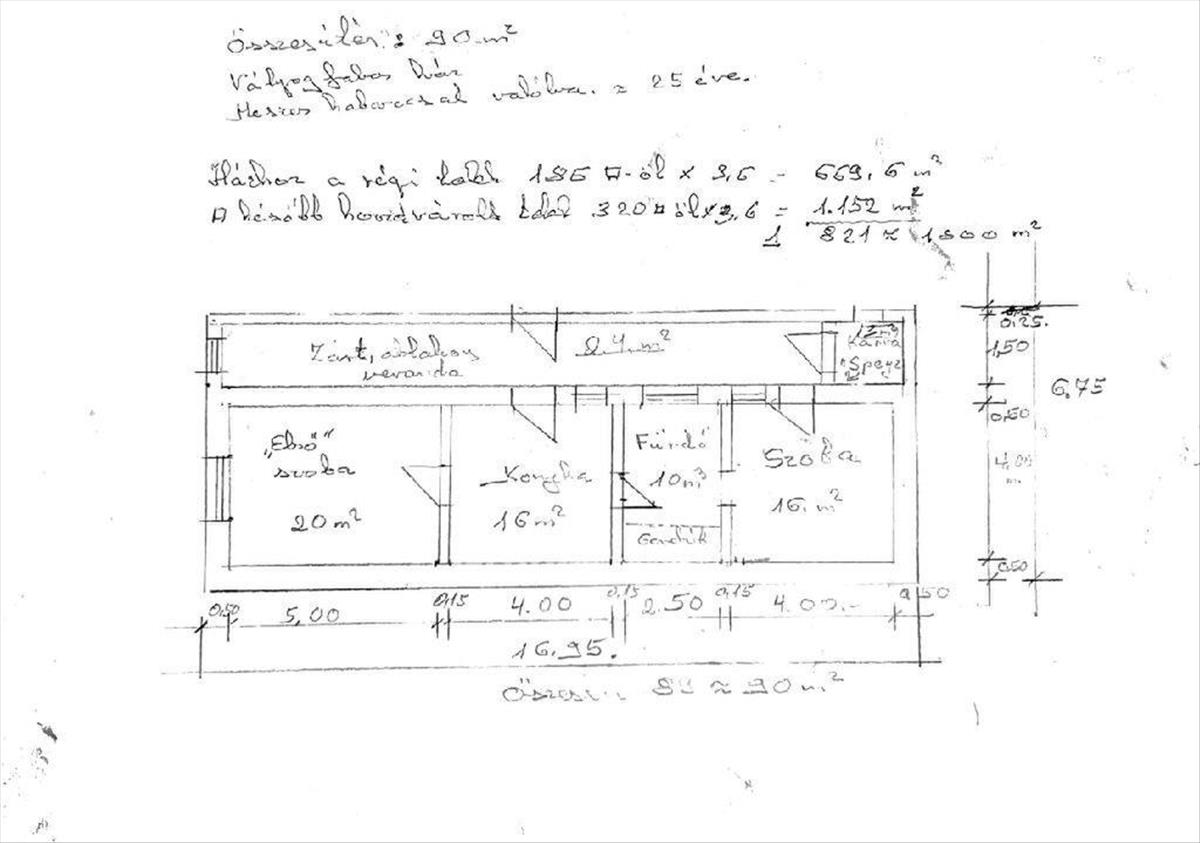 Összesülés: 90 m²
Vályogfalas ház
Meszes habarccsal ≈ 25 éve.
Házhoz a régi telek 186 □-öl × 3,6 = 669,6 m²
A később hozzávárolt telek 320 □ öl × 3,6 = 1.152 m²
1 821 ≈ 1800 m²
0,25.
Zárt, ablakos
veranda
24 m²
Kamra
"Spejz"
1,50
6,75
0,50
„Első"
szoba
20 m²
Konyha
16 m²
Fürdő
10 m³
Szoba
16. m²
4,00
0,50
0,50
5,00
0,15
4.00
0,15
2.50
0,15
4.00.-
0,50
16.95.
Összesen ≈ 90 m²